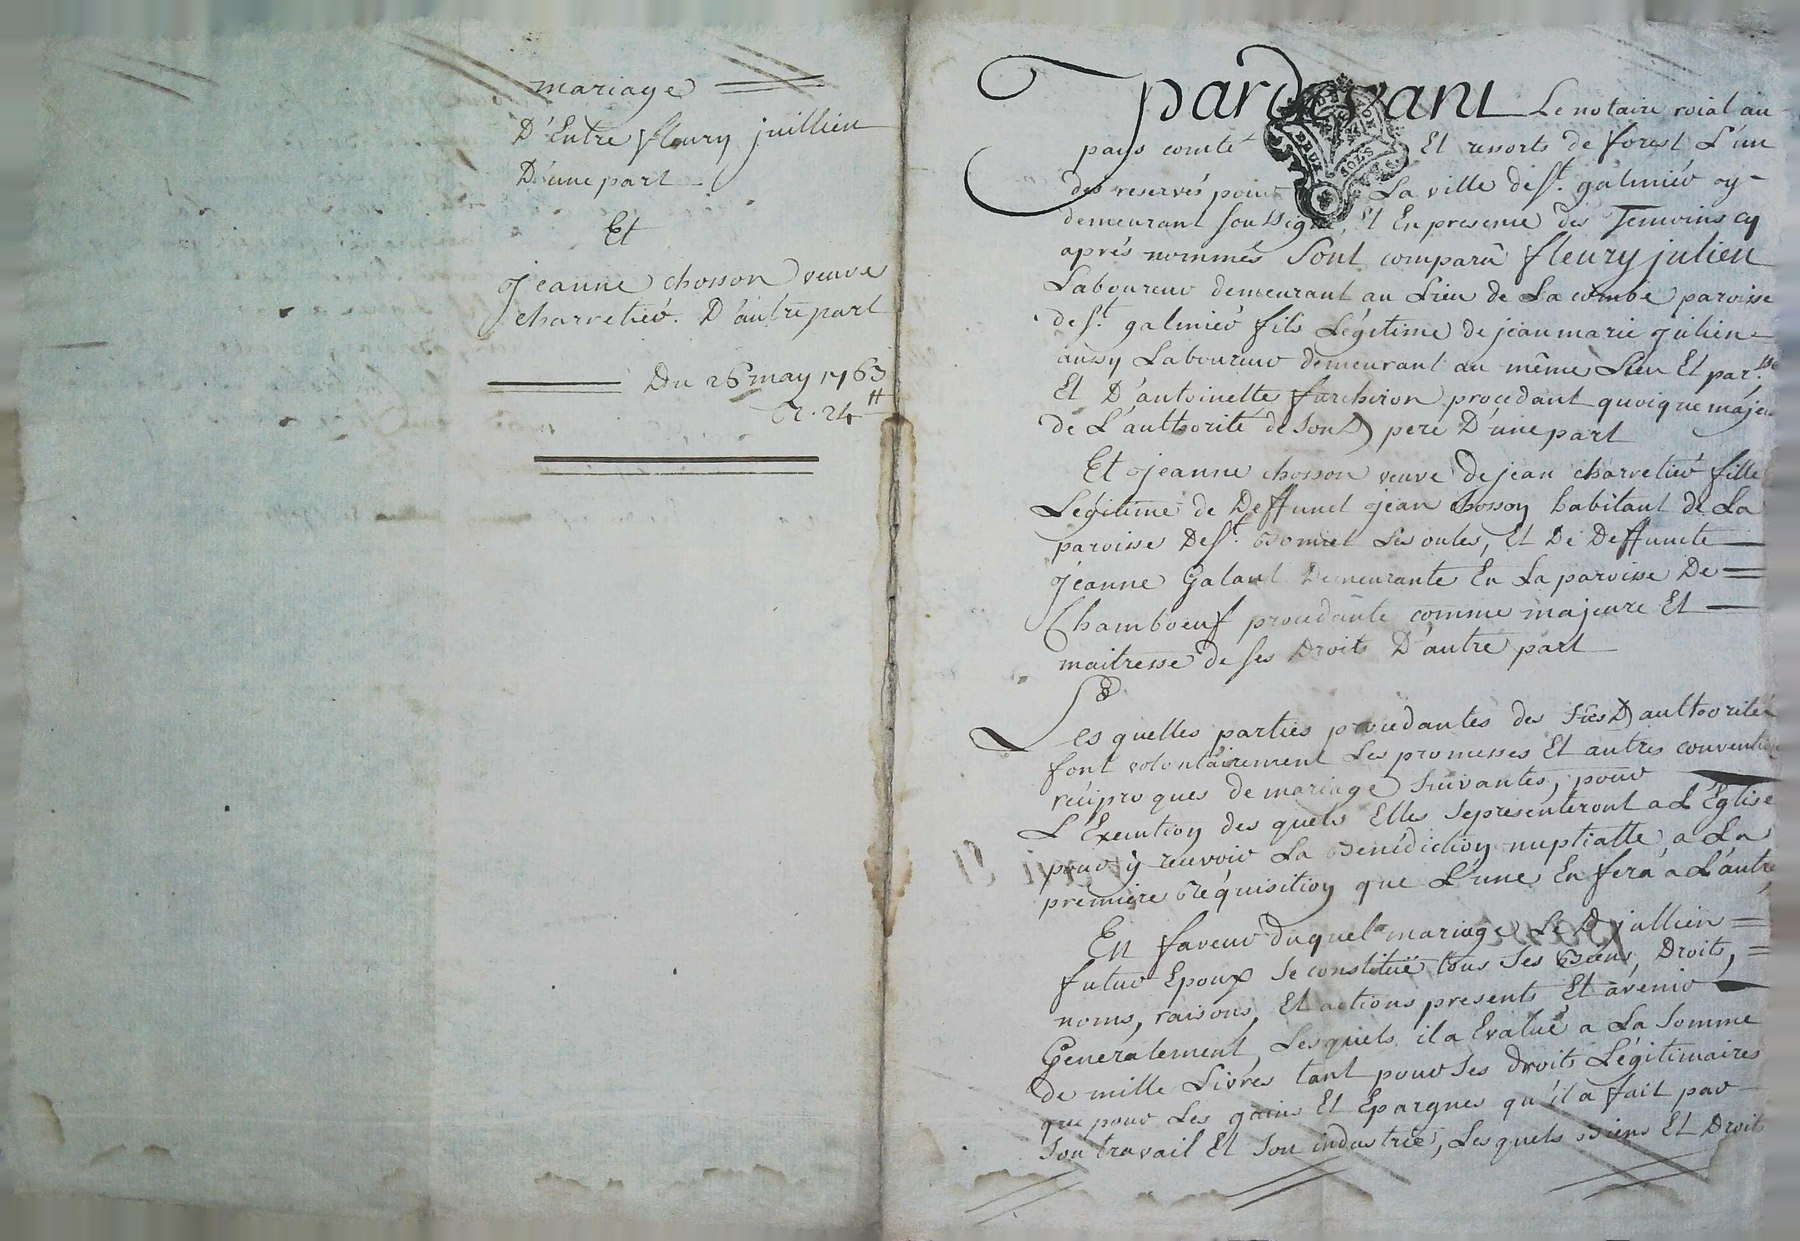 mariage
D'Entre fleury juillien
D'une part
Et
Jeanne chosson veuve
charretier. D'autre part
Du 26 may 1763
R. 24 ₶
pardevant Le notaire roial au
pays comté Et ressorts de forest L'un
des reservés pour La ville de St. galmier y
demeurant soussigné, Et En presence des Temoins cy
après nommés Sont comparû fleury julien
Laboureur demeurant au Lieu de La combe paroisse
de St. galmier fils Légitime de jean marie julien
aussy Laboureur demeurant au même Lieu Et par.sse
Et D'antoinette furchiron procedant quoique majeur
de L'authorité de son D pere D'une part
Et Jeanne chosson veuve de jean charretier fille
Légitime de Deffunct jean chosson habitant de La
paroisse De St. Bonnet Les oules, Et De Deffuncte
Jeanne Galant Demeurante En La paroisse De
Chamboeuf procedante comme majeure Et
maitresse de ses Droits D'autre part
Les quelles parties procedantes des Stes D authorités
font volontairement Les promesses Et autres convention
réciproques de mariage suivantes, pour
L'Execution des quels Elles se presenteront a L'Eglise
pour y recevoir La Bénédiction nuptialle a La
première Réquisition que L'une En fera a L'autre
En faveur duquel mariage Le D jullien
futur Epoux se constitüe tous ses Biens, Droits,
noms, raisons, Et actions presents Et avenir
Generalement, Les quels il a Evalué a La somme
de mille Livres tant pour ses droits Légitimaires
que pour Les gains Et Epargnes qu'il a fait par
son travail Et son industrie, Les quels Biens Et Droits